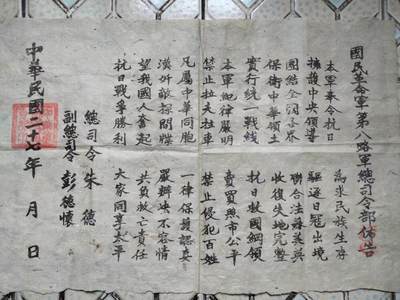 國民革命軍第八路軍總司令部佈告
本軍奉令抗日 為求民族生存
擁護中央領導 驅逐日寇出境
團結全國各界 聯合法蘇美英
保衛中華領土 收復失地完整
實行統一戰線 抗日救國綱領
本軍紀律嚴明 賣買照市公平
禁止拉夫拉車 禁止侵犯百姓
凡屬中華同胞 一律保護認真
漢奸敵探間諜 嚴辦 不容情
望我國人奮起 共負救亡責任
抗日戰爭勝利 大家同享太平
總司令 朱德
副總司令 彭德懷
中華民國二十七年 月 日